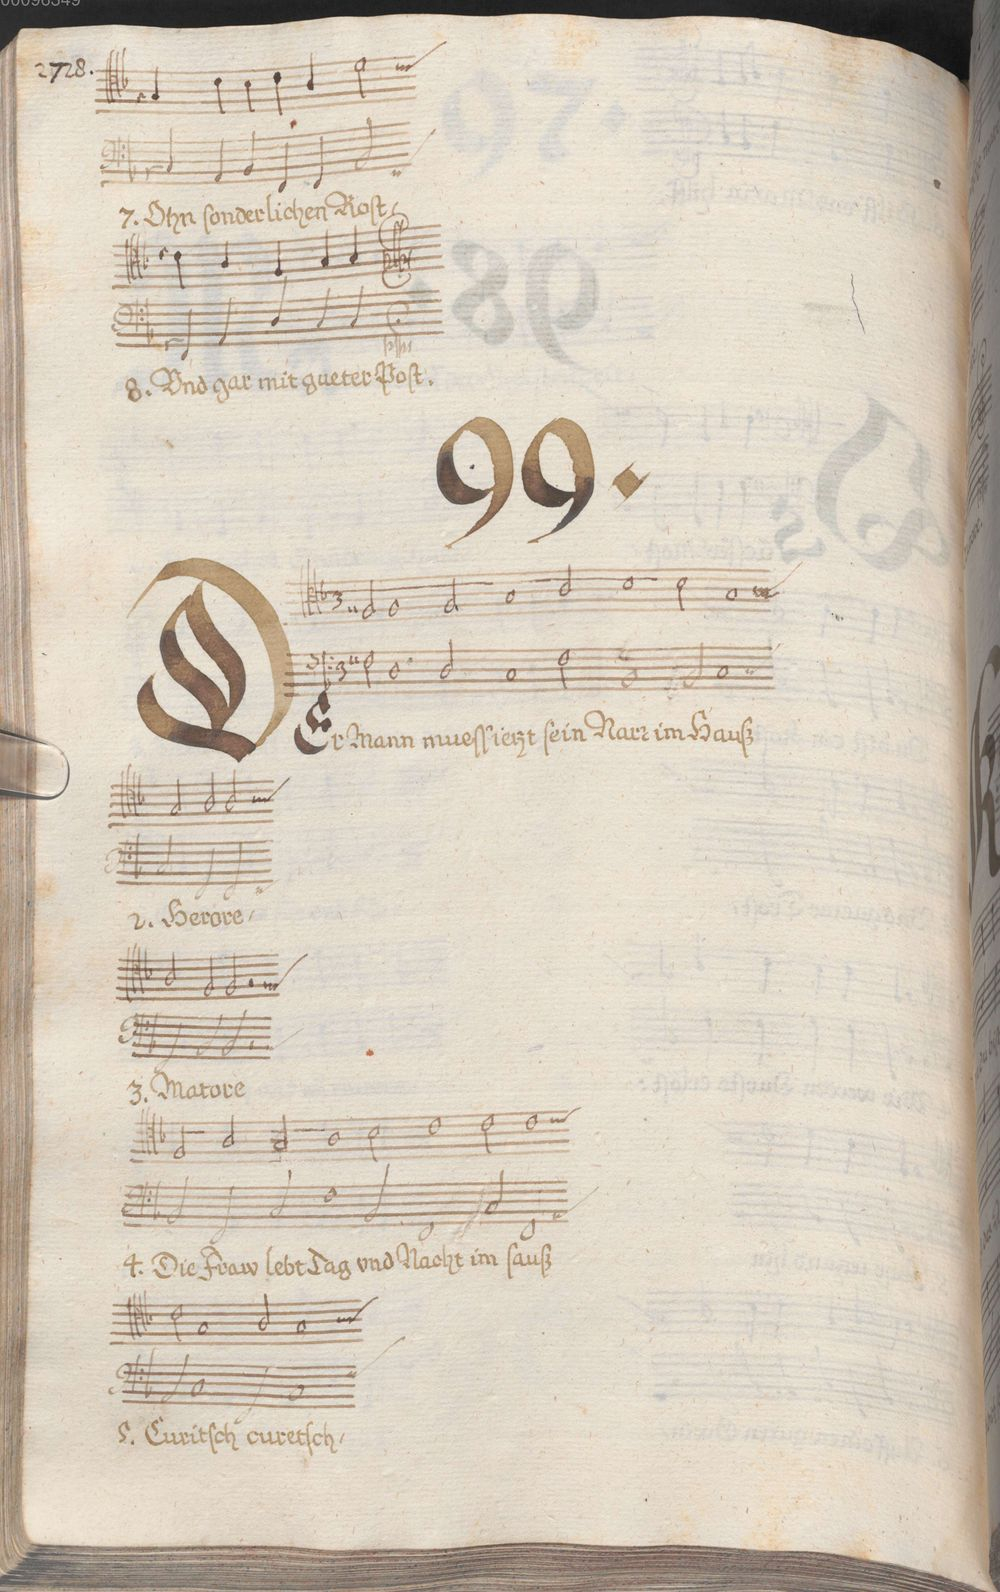 00096349
2728.
7. Ohn sonderlichen Kost/
8. Vnd gar mit gueter Post.
99.
DEr Mann muess ietzt sein Narr im Hauß
2. Herore/
3. Matore
4. Die Fraw lebt Tag vnd Nacht im sauß
5. Curitsch curetsch/